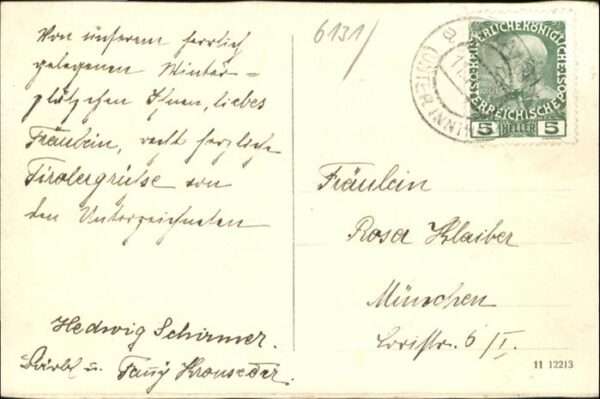 Von unserem herrlich
gelegenen Winter=
plätzchen Ihnen, liebes
Fräulein, recht herzliche
Tirolergrüße von
den Unterzeichneten
Hedwig Schirmer.
Bärbl u. Fanÿ Kronseder.
6131/
KAISERLICHE KÖNIGLICHE
ÖSTERREICHISCHE POST
5 HELLER 5
(UNTERINNT
Fräulein
Rosa Klaiber
München
Loristr. 6/I.
11 12213